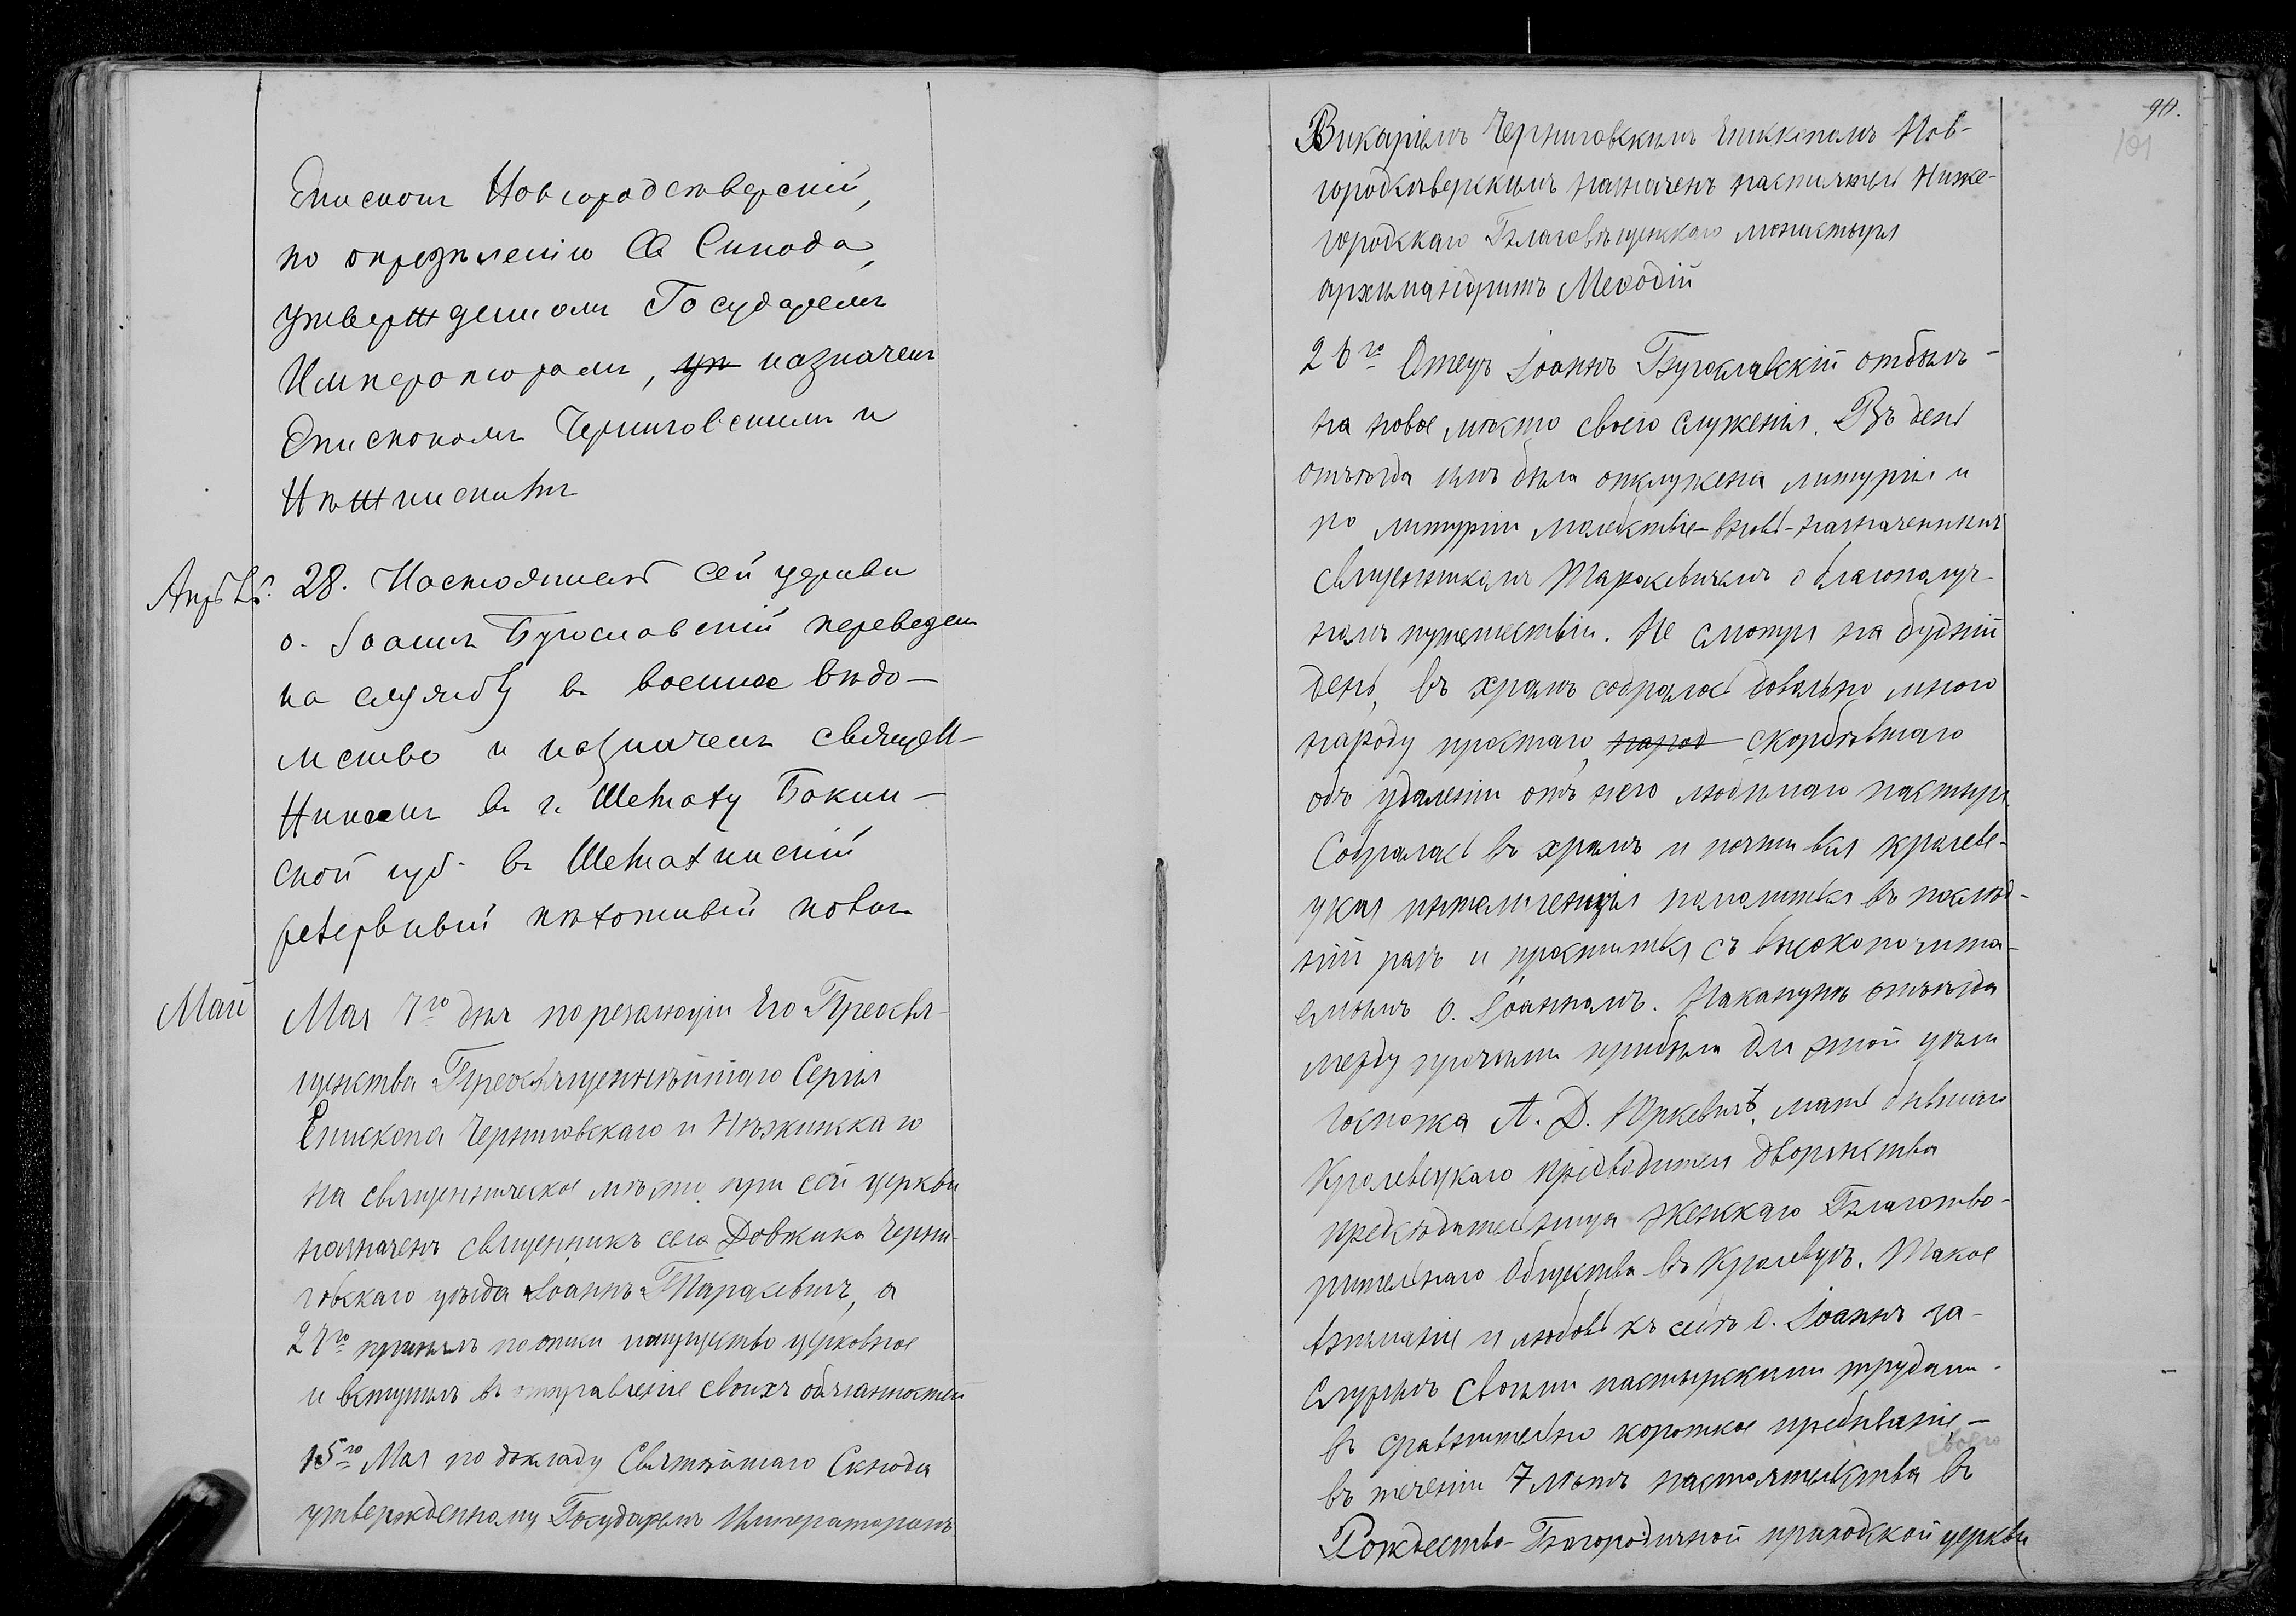 Епископъ Новгородсѣверскій,
по опредѣленію Св Синода,
утвержденномъ Государемъ
Императоромъ, ун назначенъ
Епископомъ Черниговскимъ и
Нѣжинскимъ
Апрѣль. 28. Настоятель сей церкви
о. Іоаннъ Бугославскій переведен
на службу в военное вѣдо-
мство и назначенъ священ-
никомъ въ г. Шемаху Бакин-
ской губ. въ Шемахинскій
резервный пѣхотный полкъ
Май Мая 7го дня по резолюціи Его Преосвя-
щенства Преосвященнѣйшаго Сергія
Епископа Черниговскаго и Нѣжинскаго
на священническое мѣсто при сей церкви
назначенъ священникъ села Довжика Черни-
говскаго уѣзда Іоаннъ Тарасевичъ, а
27го принялъ по описи имущество церковное
и вступилъ въ отправленіе своихъ обязанностей
15го Мая по докладу Святѣйшаго Синода
утвержденному Государемъ Императоромъ
90.
101
Викаріемъ Черниговскимъ Епископомъ Нов-
городсѣверскимъ назначенъ настоятель Ниже-
городскаго Благовѣщенскаго монастыря
архимандритъ Меѳодій
28го Отецъ Іоаннъ Бугославскій отбылъ
на новое мѣсто своего служенія. Въ день
отъѣзда имъ была отслужена литургія и
по литургіи молебствіе-вновь-назначеннымъ
священникомъ Тарасевичемъ о благополуч-
номъ путешествіи. Не смотря на будній
день, въ храмъ собралось довольно много
народу простаго, народ скорбѣвшаго
объ удаленіи отъ него любимаго пастыря
Собралась въ храмъ и почти вся кролеве-
цкая интелигенція помолиться въ послѣд-
ній разъ и проститься съ высокопочита-
емымъ о. Іоанномъ. Наканунѣ отъѣзда
между прочими прибыла для этой цѣли
госпожа А. Д. Юркевичъ, мать бывшаго
Кролевецкаго предводителя дворянства
предсѣдательница женскаго Благотво-
рительнаго Общества въ Кролевцѣ. Такое
вниманіе и любовь къ себѣ о. Іоаннъ за-
служилъ своими пастырскими трудами
въ сравнительно короткое пребываніе-
въ теченіи 7 лѣтъ своего настоятельства въ
Рождество-Богородичной приходской церкви